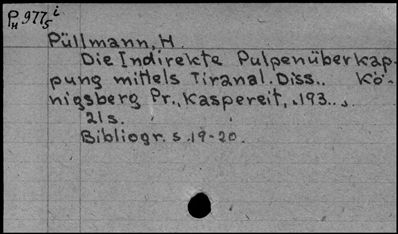 PH 977 i
5
Püllmann, H.
Die Indirekte Pulpenüberkap-
pung mittels Tiranal. Diss.. Kö-
nigsberg Pr., Kaspereit, .193..,
21s.
Bibliogr. s. 19-20.